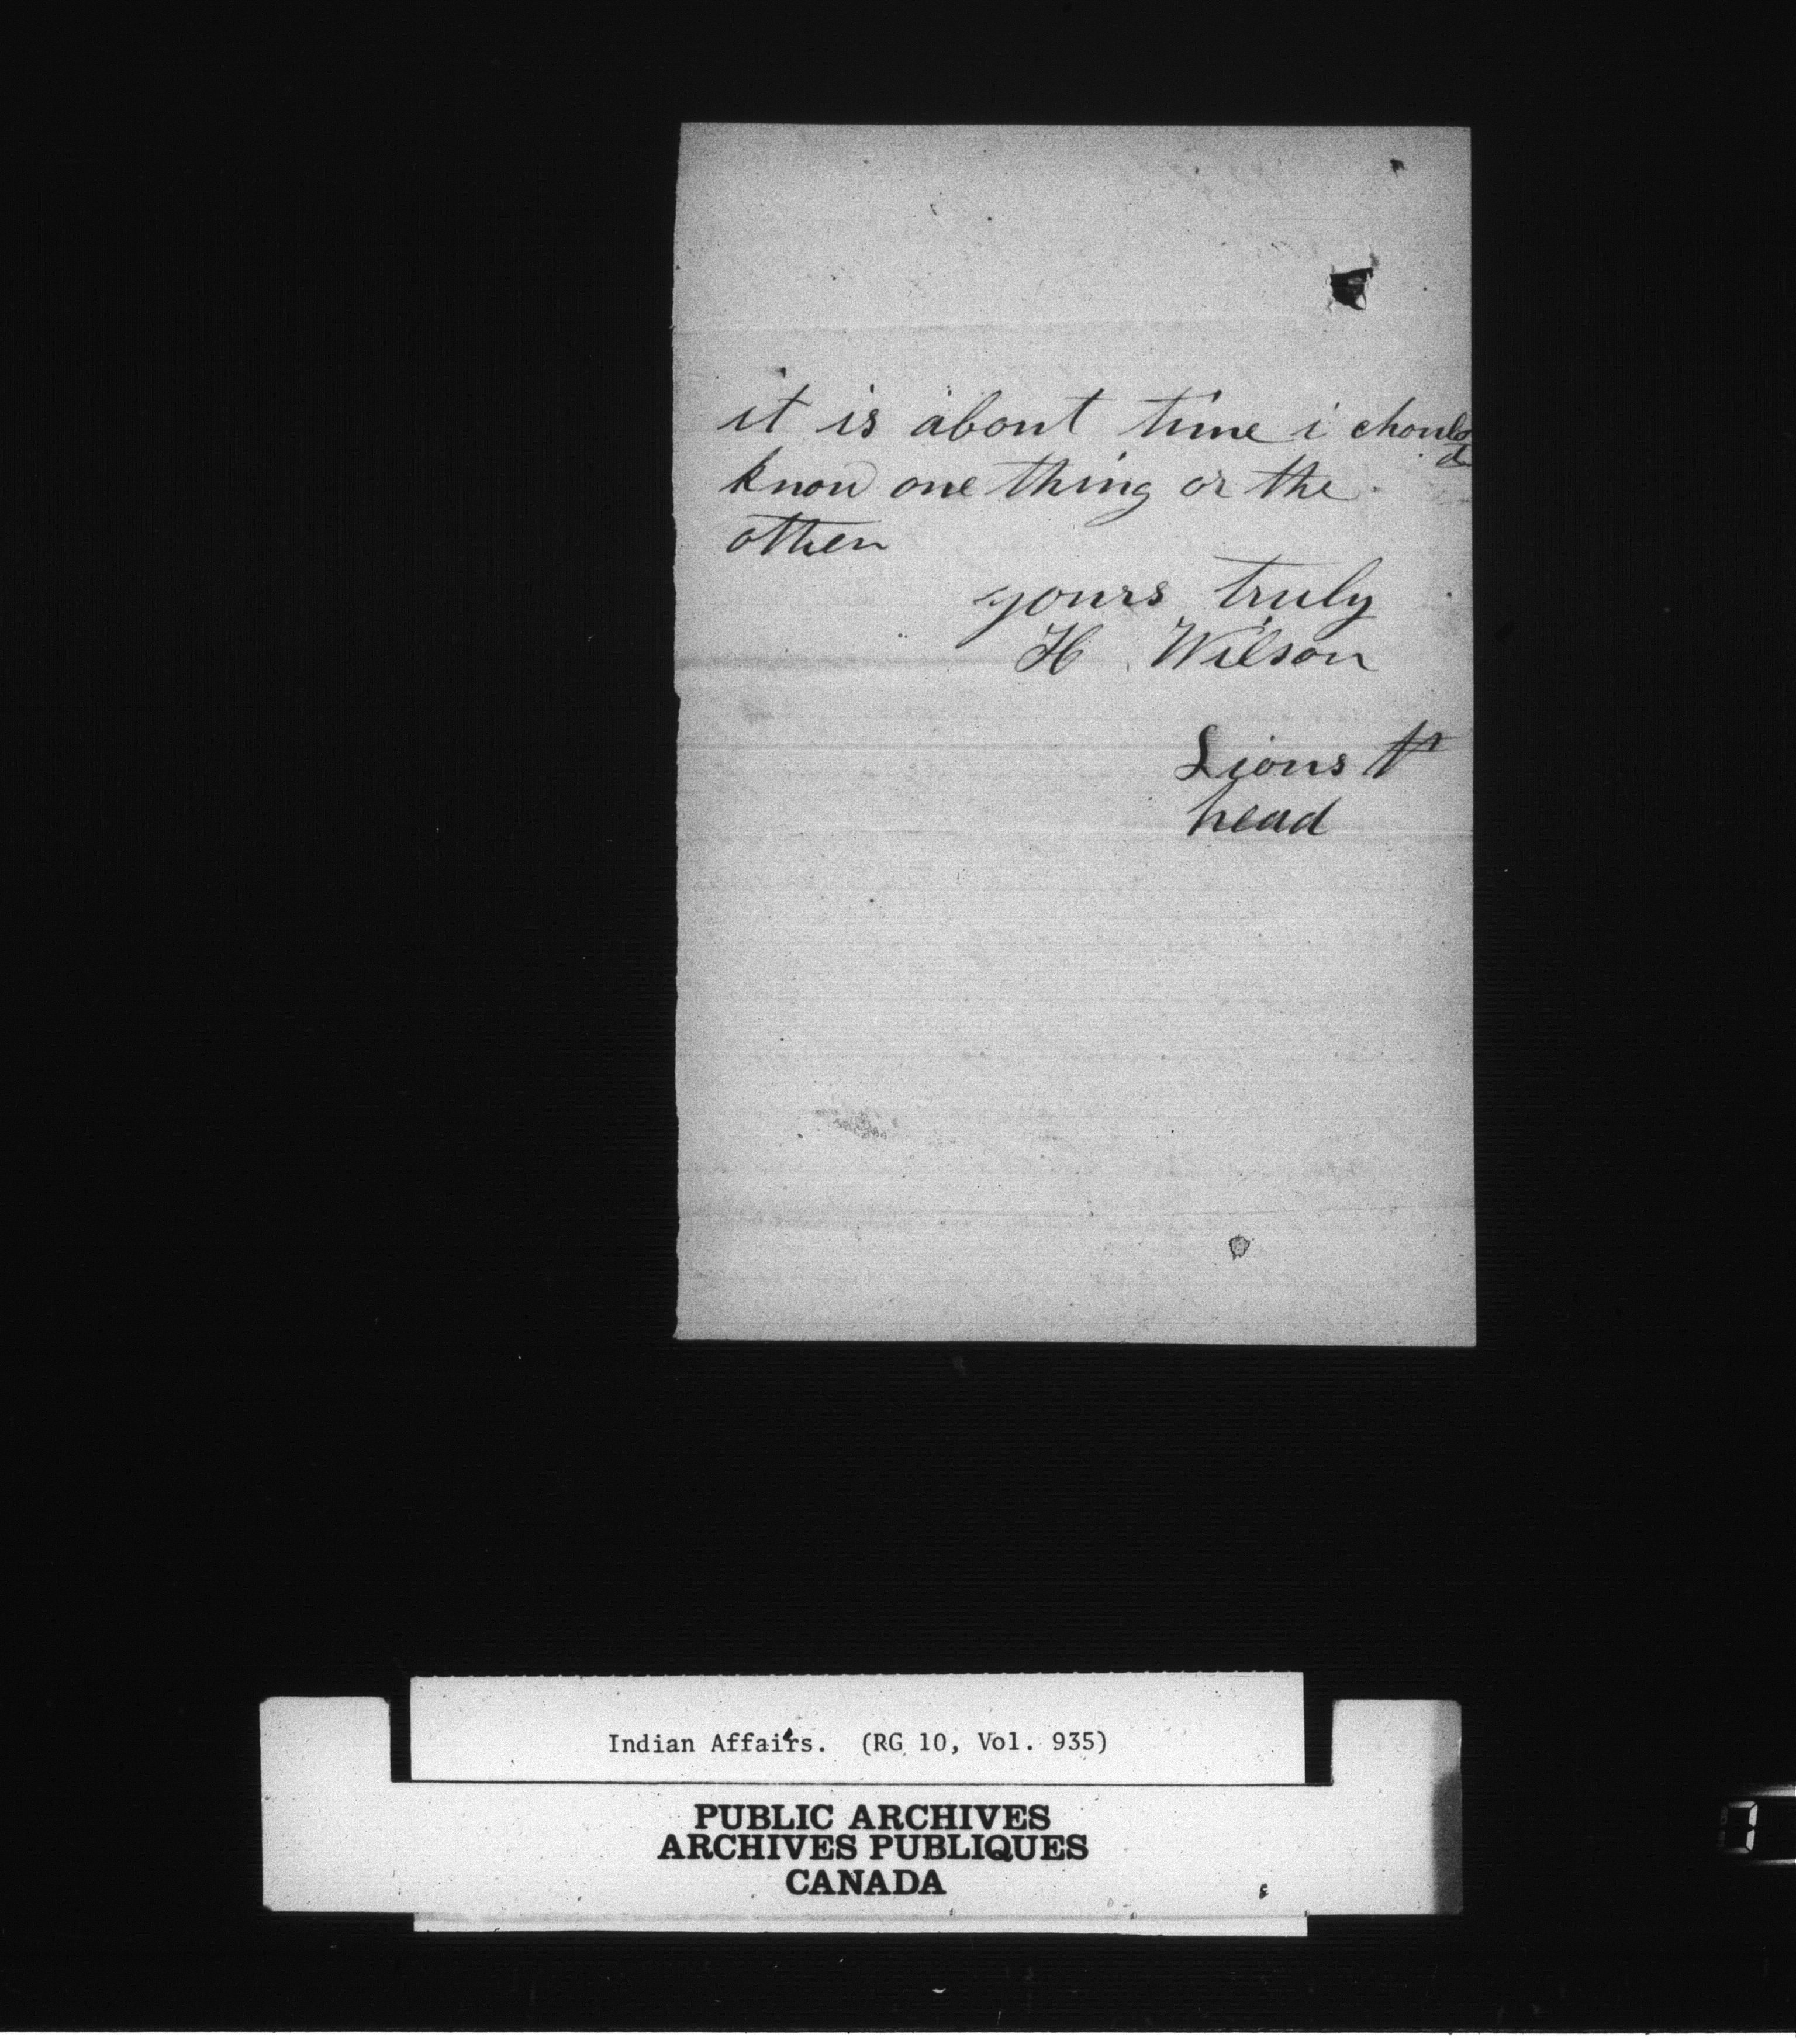 it is about time i chould
know one thing or the
other
yours truly
H Wilson
Lions
head
Indian Affairs. (RG 10, Vol. 935)
PUBLIC ARCHIVES
ARCHIVES PUBLIQUES
CANADA